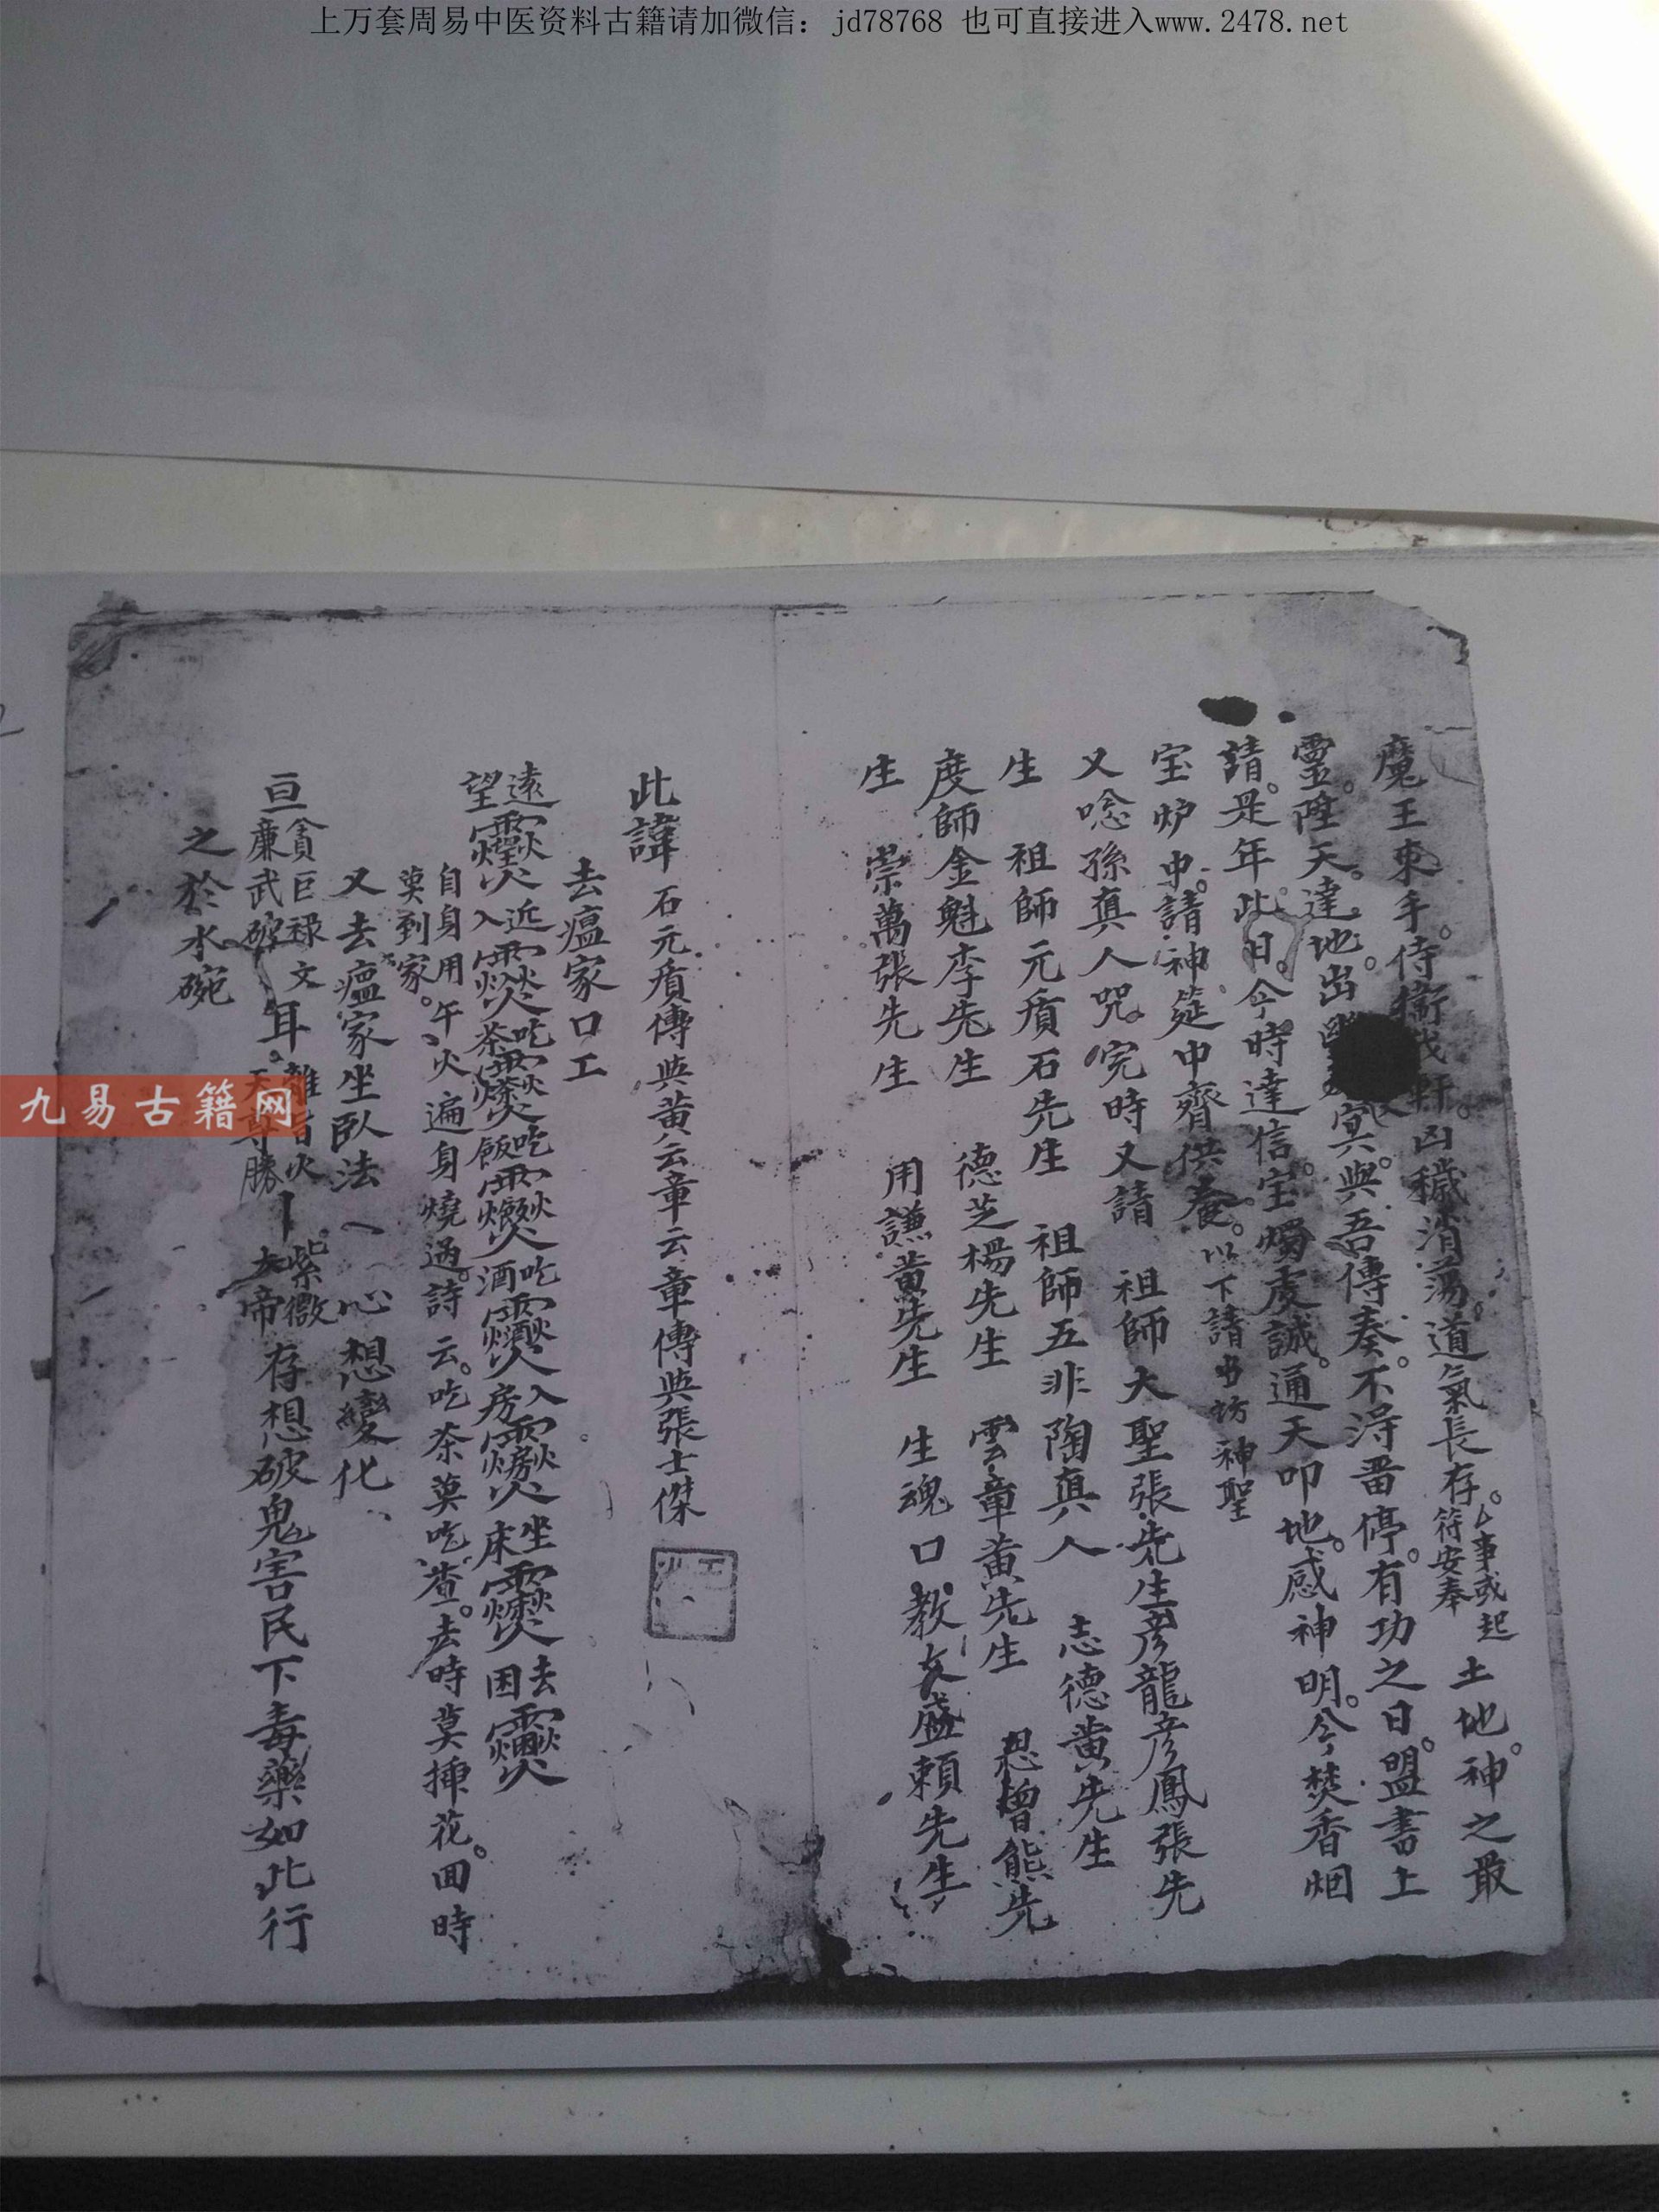 上万套周易中医资料古籍请加微信：jd78768 也可直接进入www.2478.net
魔王束手。侍衛我軒。凶穢消蕩。道氣長存。事或起符安奉 土地神之最
靈。陞天。達地。出幽冥。與吾傳奏。不得畱停。有功之日。盟書上
請。是年。此日。今時達信。宝燭虔誠。通天叩地。感神明。今焚香烟
宝炉中。請神筵中齊供養。以下請 坊神聖
又唸孫真人咒。完時又請 祖師大聖張先生彦龍彦鳳張先
生 祖師元瘨石先生 祖師五非陶真人 志德黄先生
度師金魁李先生 德芝楊先生 雲章黄先生 思增熊先
生 崇萬張先生 用謙黄先生 生魂口教友盛賴先生
此諱 石元瘨傳與黄云章云章傳與張士傑
去瘟家口工
遠望 近入 吃茶 吃飯 吃酒 入房 坐床 去困
自身用午火遍身燒過。詩云。吃茶莫吃渣。去時莫揷花。回時
莫到家。
又去瘟家坐臥法 心想變化
貪巨禄文廉武破 耳 天尊 勝 紫微大帝 存想破鬼害民下毒藥如此行
之於水碗
九易古籍网